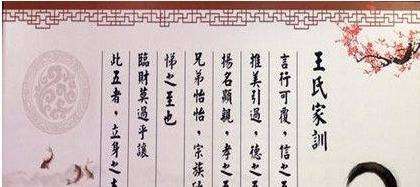 王氏家訓
言行可覆，信之至
推美引過，德之至
揚名顯親，孝之至
兄弟怡怡，宗族
悌之至也
臨財莫過乎讓
此五者，立身之